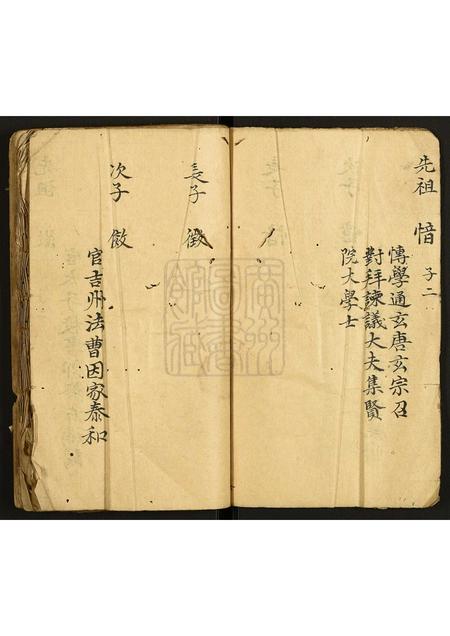 先祖 愔 子二
愽學通玄唐玄宗召
對拜諫議大夫集賢
院大學士
長子 徴
次子 斂
官吉州法曹因家泰和